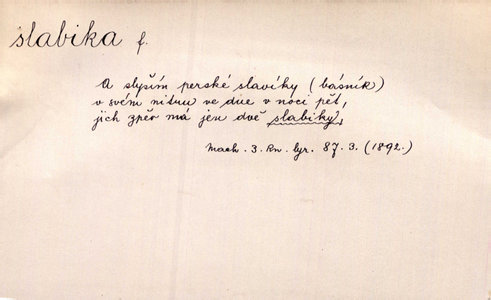 slabika f.
A slyším perské slavíky (básník)
v svém nitru ve dne v noci pět,
jich zpěv má jen dvě slabiky,
Mach. 3. Kn. lyr. 87. 3. (1892.)